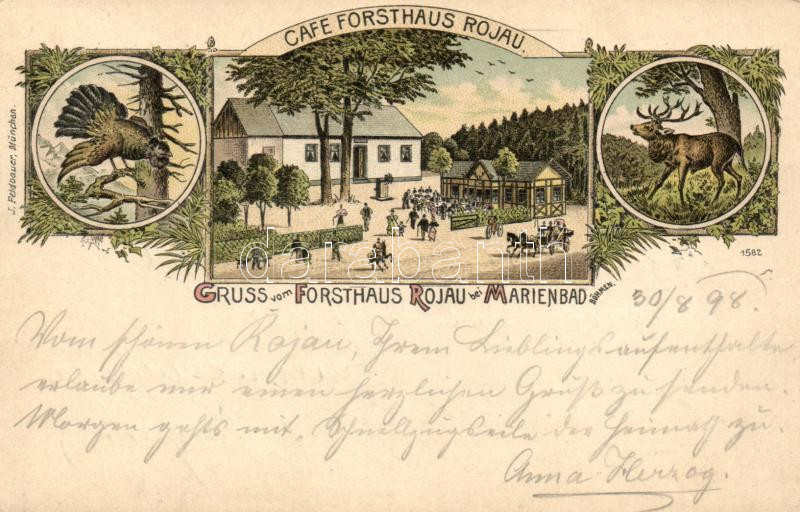 CAFE FORSTHAUS ROJAU.
J. Feldbauer, München.
1562
GRUSS vom FORSTHAUS ROJAU bei MARIENBAD BÖHMEN.
30/8 98.
Vom schönen Rojau, Ihrem Lieblingsaufenthalte
erlaube mir einen herzlichen Gruß zu senden.
Morgen geht's mit Schnellzugseile der Heimat zu.
Anna Herzog.
darabanth.com